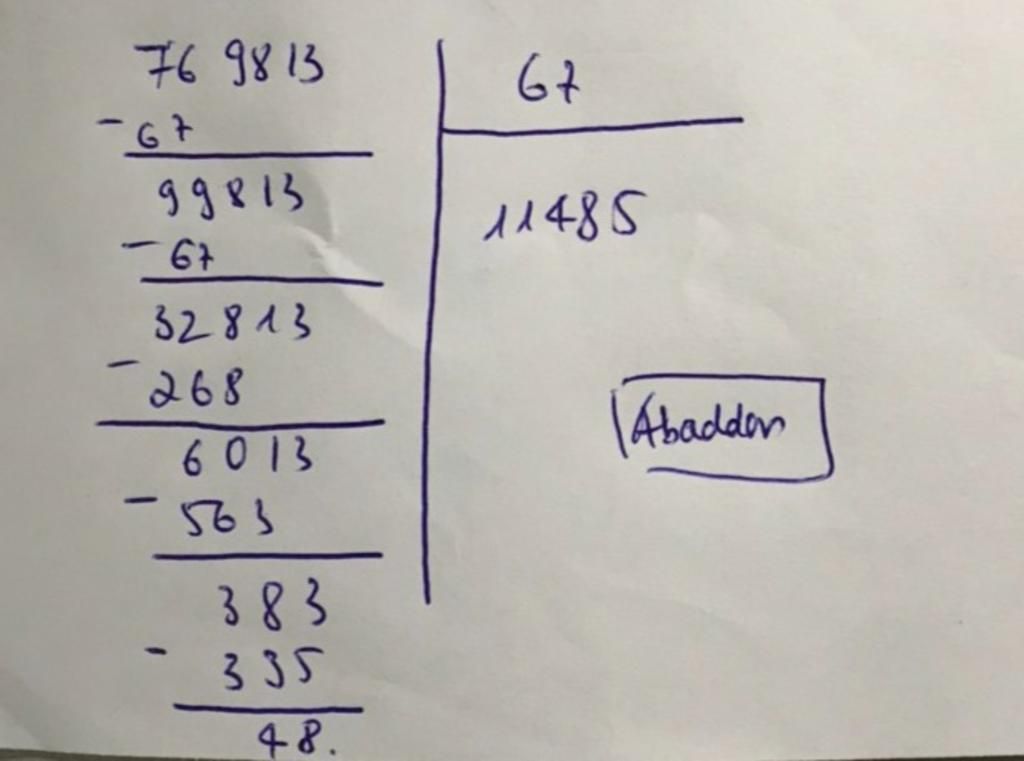 769813
67
- 67
99813
11485
- 67
32813
- 268
Abaddon
6013
- 563
383
- 335
48.